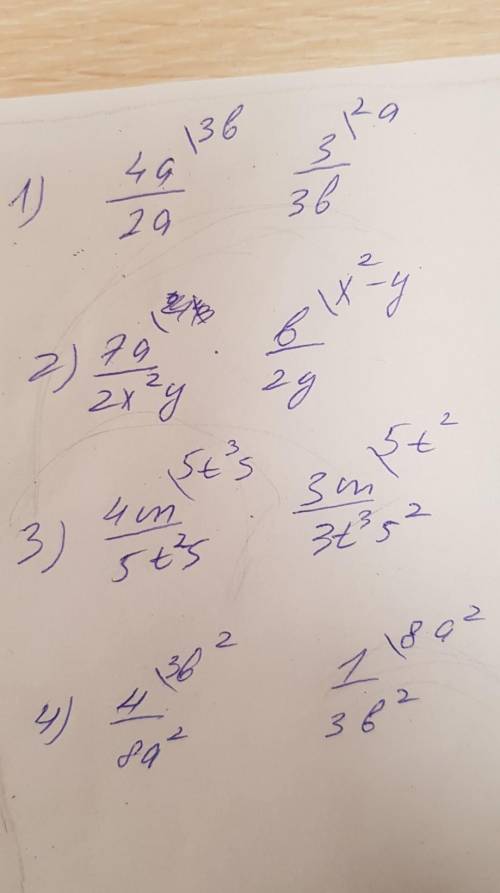 1) 4a/2a \3b 3/3b \2a
2) 7a/2x²y b/2y \x²-y
3) 4m/5t²s \5t³s 3m/3t³s² \5t²
4) 4/8a² \3b² 1/3b² \8a²